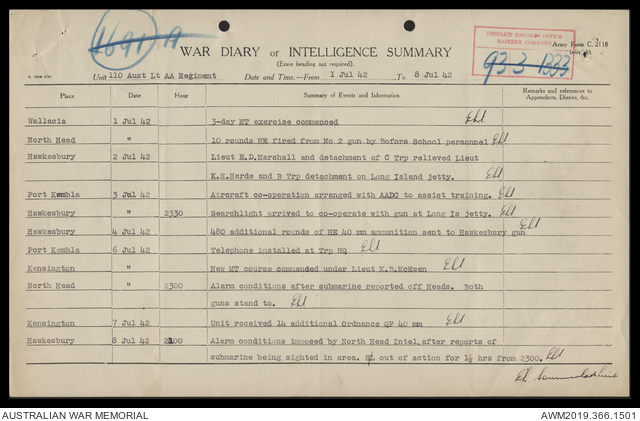 1691/A
DISTRICT RECORDS OFFICE
EASTERN COMMAND
Army Form C. 2118
WAR DIARY or INTELLIGENCE SUMMARY
(Erase heading not required).
933 1333
Unit 110 Aust Lt AA Regiment Date and Time.—From 1 Jul 42 To 8 Jul 42
Place Date Hour Summary of Events and Information Remarks and references to Appendices, Diaries, &c.
Wallacia 1 Jul 42 3-day MT exercise commenced
North Head " 10 rounds HE fired from No 2 gun by Bofors School personnel
Hawkesbury 2 Jul 42 Lieut E.D.Marshall and detachment of C Trp relieved Lieut
K.H.Herde and B Trp detachment on Long Island jetty.
Port Kembla 3 Jul 42 Aircraft co-operation arranged with AADC to assist training.
Hawkesbury " 2330 Searchlight arrived to co-operate with gun at Long Is jetty.
Hawkesbury 4 Jul 42 480 additional rounds of HE 40 mm ammunition sent to Hawkesbury gun
Port Kembla 6 Jul 42 Telephone installed at Trp HQ
Kensington " New MT course commended under Lieut K.R.McEwen
North Head 2300 Alarm conditions after submarine reported off Heads. Both
guns stand to.
Kensington 7 Jul 42 Unit received 14 additional Ordnance QF 40 mm
Hawkesbury 8 Jul 42 2100 Alarm conditions imposed by North Head Intel, after reports of
submarine being sighted in area. out of action for 1½ hrs from 2300.
AUSTRALIAN WAR MEMORIAL
AWM2019.366.1501